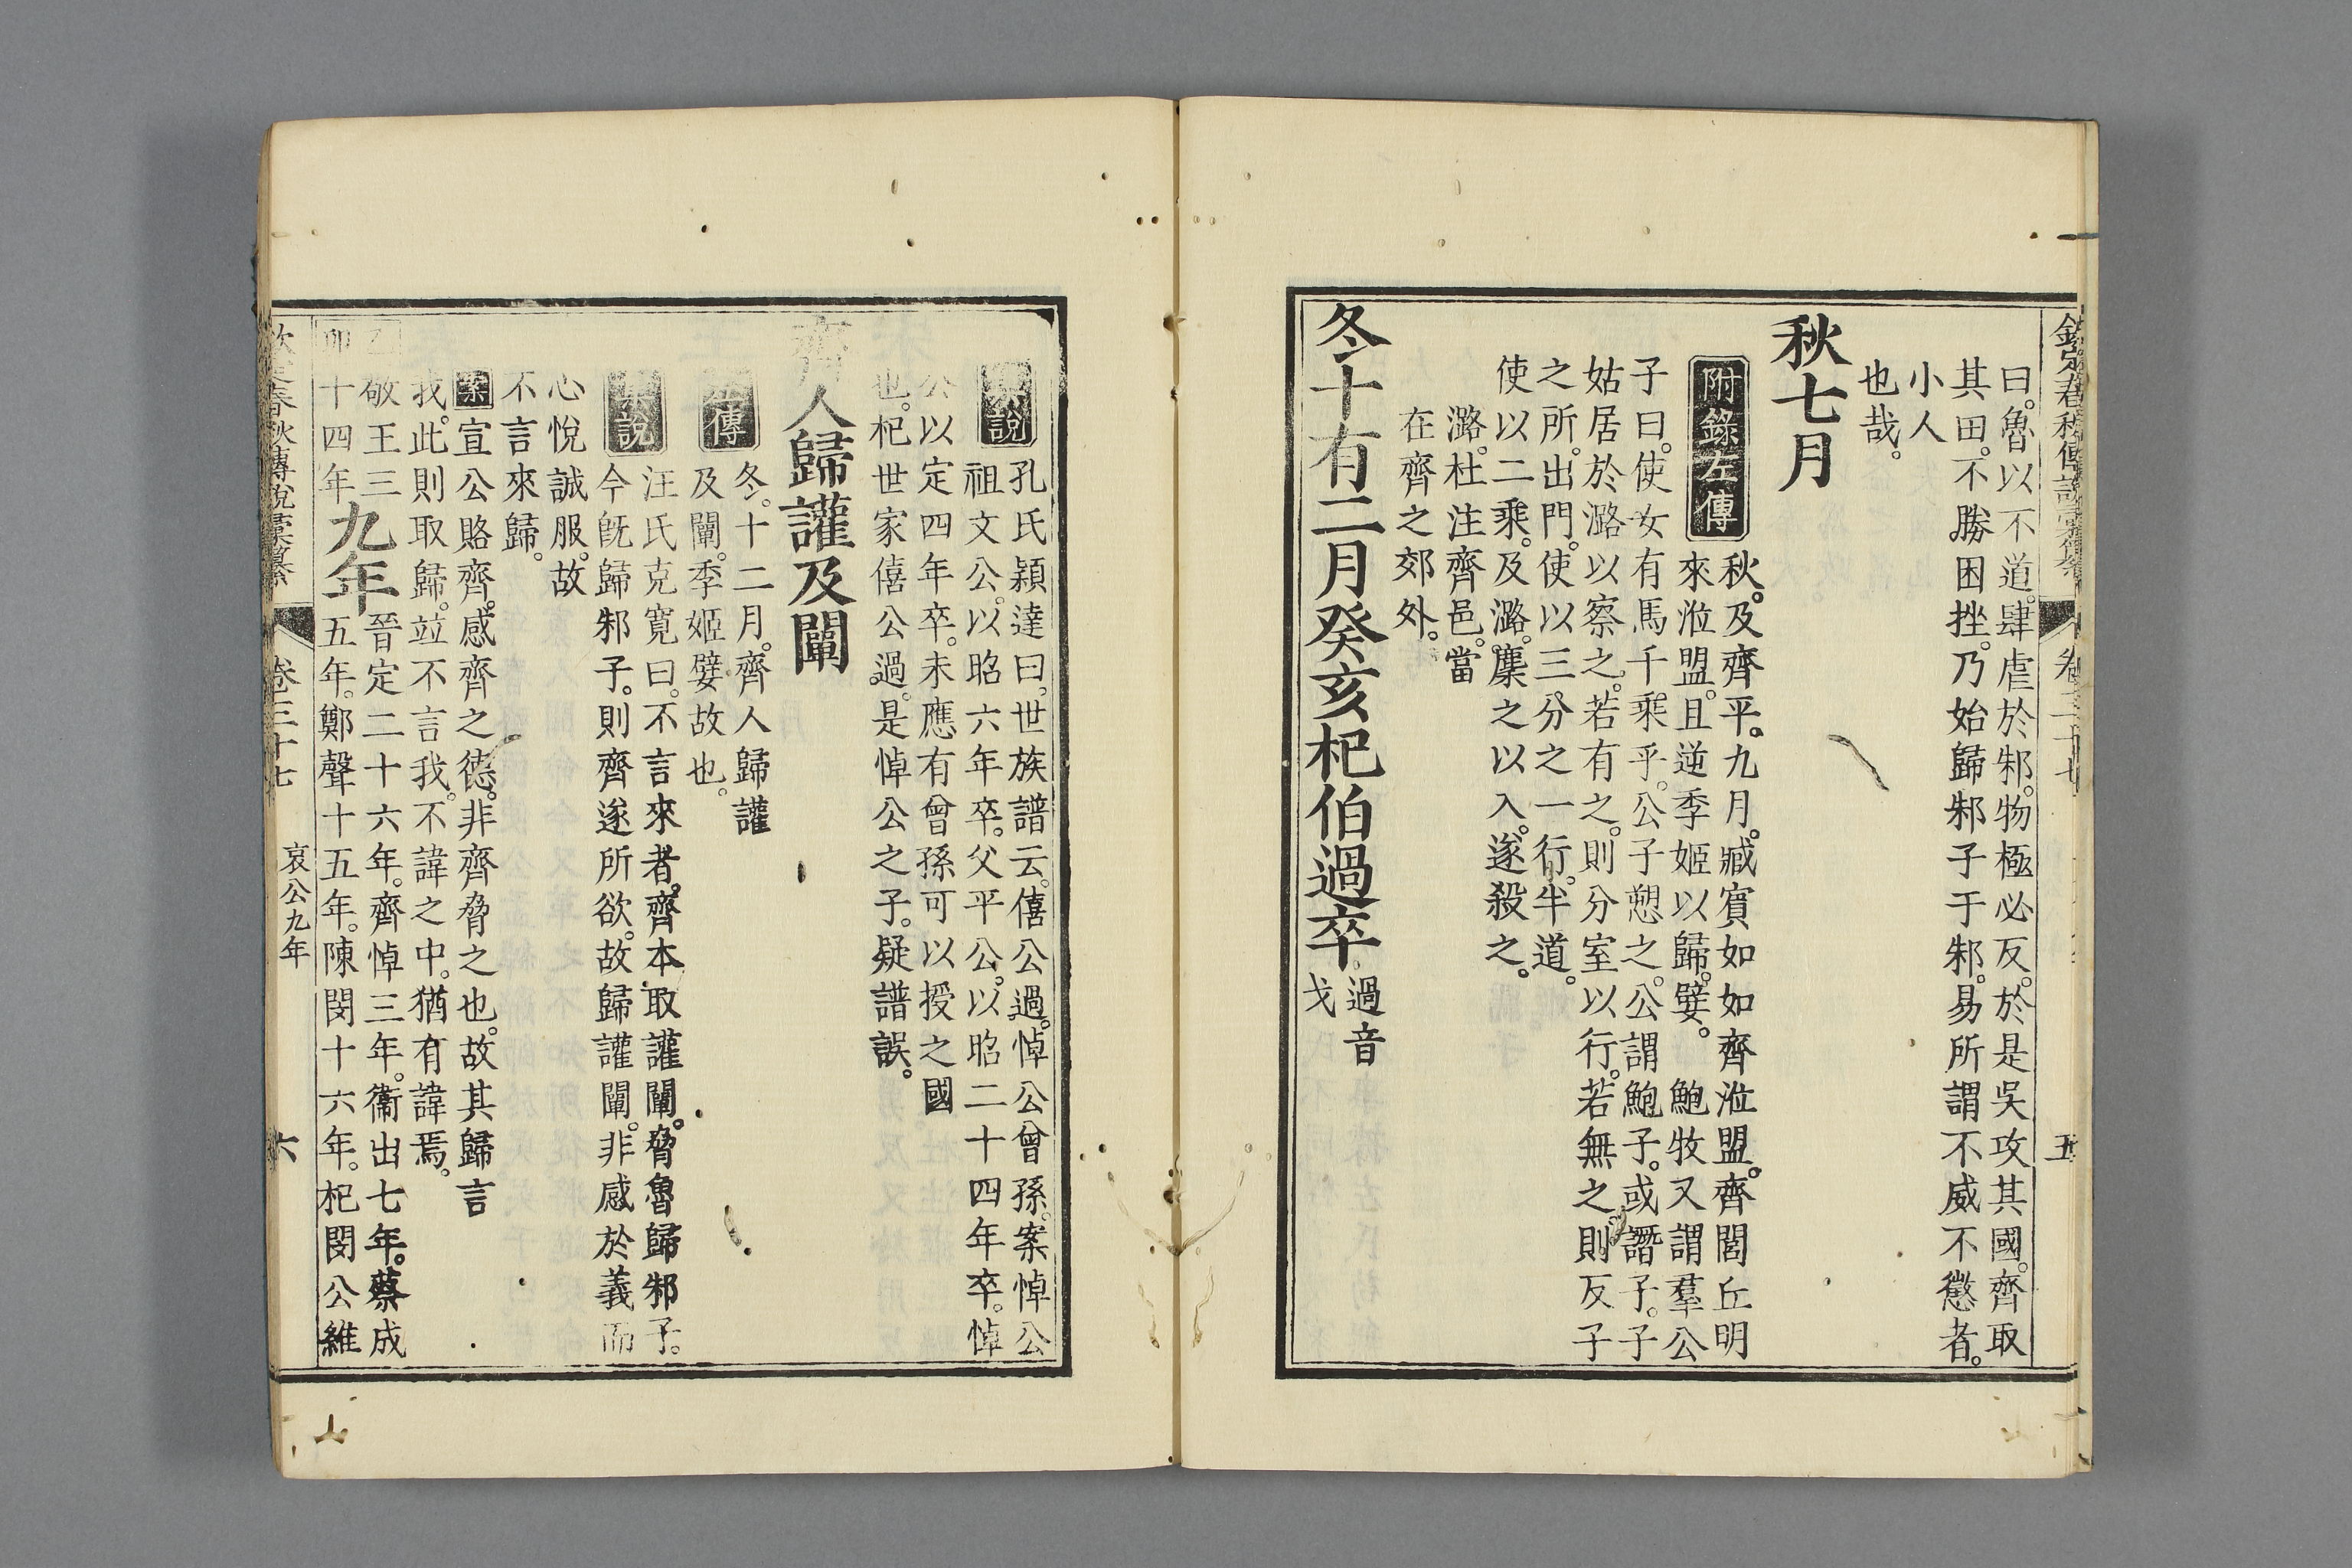 欽定春秋傳說彙纂 卷三十七 五
曰。魯以不道。肆虐於邾。物極必反。於是吳攻其國。齊取
其田。不勝困挫。乃始歸邾子于邾。易所謂不威不懲者。
小人
也哉。
秋七月
附錄左傳
秋。及齊平。九月。臧賓如如齊涖盟。齊閭丘明
來涖盟。且逆季姬以歸。嬖。鮑牧又謂羣公
子曰。使女有馬千乘乎。公子愬之。公謂鮑子。或譖子。子
姑居於潞以察之。若有之。則分室以行。若無之。則反子
之所。出門。使以三分之一行。半道。
使以二乘。及潞。麇之以入。遂殺之。
潞。杜注齊邑。當
在齊之郊外。
冬十有二月癸亥杞伯過卒
過音
戈
集說
孔氏穎達曰。世族譜云。僖公過。悼公曾孫。案悼公
祖文公。以昭六年卒。父平公。以昭二十四年卒。悼
公以定四年卒。未應有曾孫可以授之國
也。杞世家僖公過。是悼公之子。疑譜誤。
齊人歸讙及闡
左傳
冬。十二月。齊人歸讙
及闡。季姬嬖故也。
集說
汪氏克寬曰。不言來者。齊本取讙闡。脅魯歸邾子。
今旣歸邾子。則齊遂所欲。故歸讙闡。非感於義而
心悅誠服。故
不言來歸。
案宣公賂齊。感齊之德。非齊脅之也。故其歸言
我。此則取歸。竝不言我。不諱之中。猶有諱焉。
乙卯
敬王三
十四年
九年
晉定二十六年。齊悼三年。衞出七年。蔡成
五年。鄭聲十五年。陳閔十六年。杞閔公維
欽定春秋傳說彙纂 卷三十七 哀公九年 六